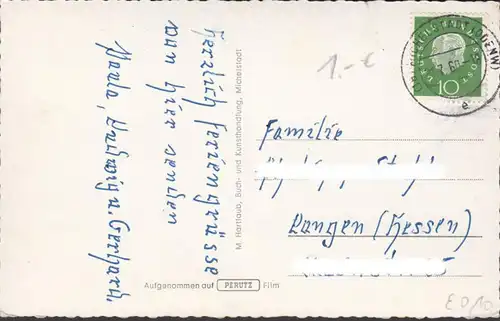 Herzlich Feriengrüsse
von hier senden
Paula, Ludwig u. Gerhard.
M. Hartlaub, Buch- und Kunsthandlung, Michelstadt
Aufgenommen auf PERUTZ Film
1.-€
DEUTSCHE BUNDESPOST
10
(ODENW)
e
Familie
Langen (Hessen)